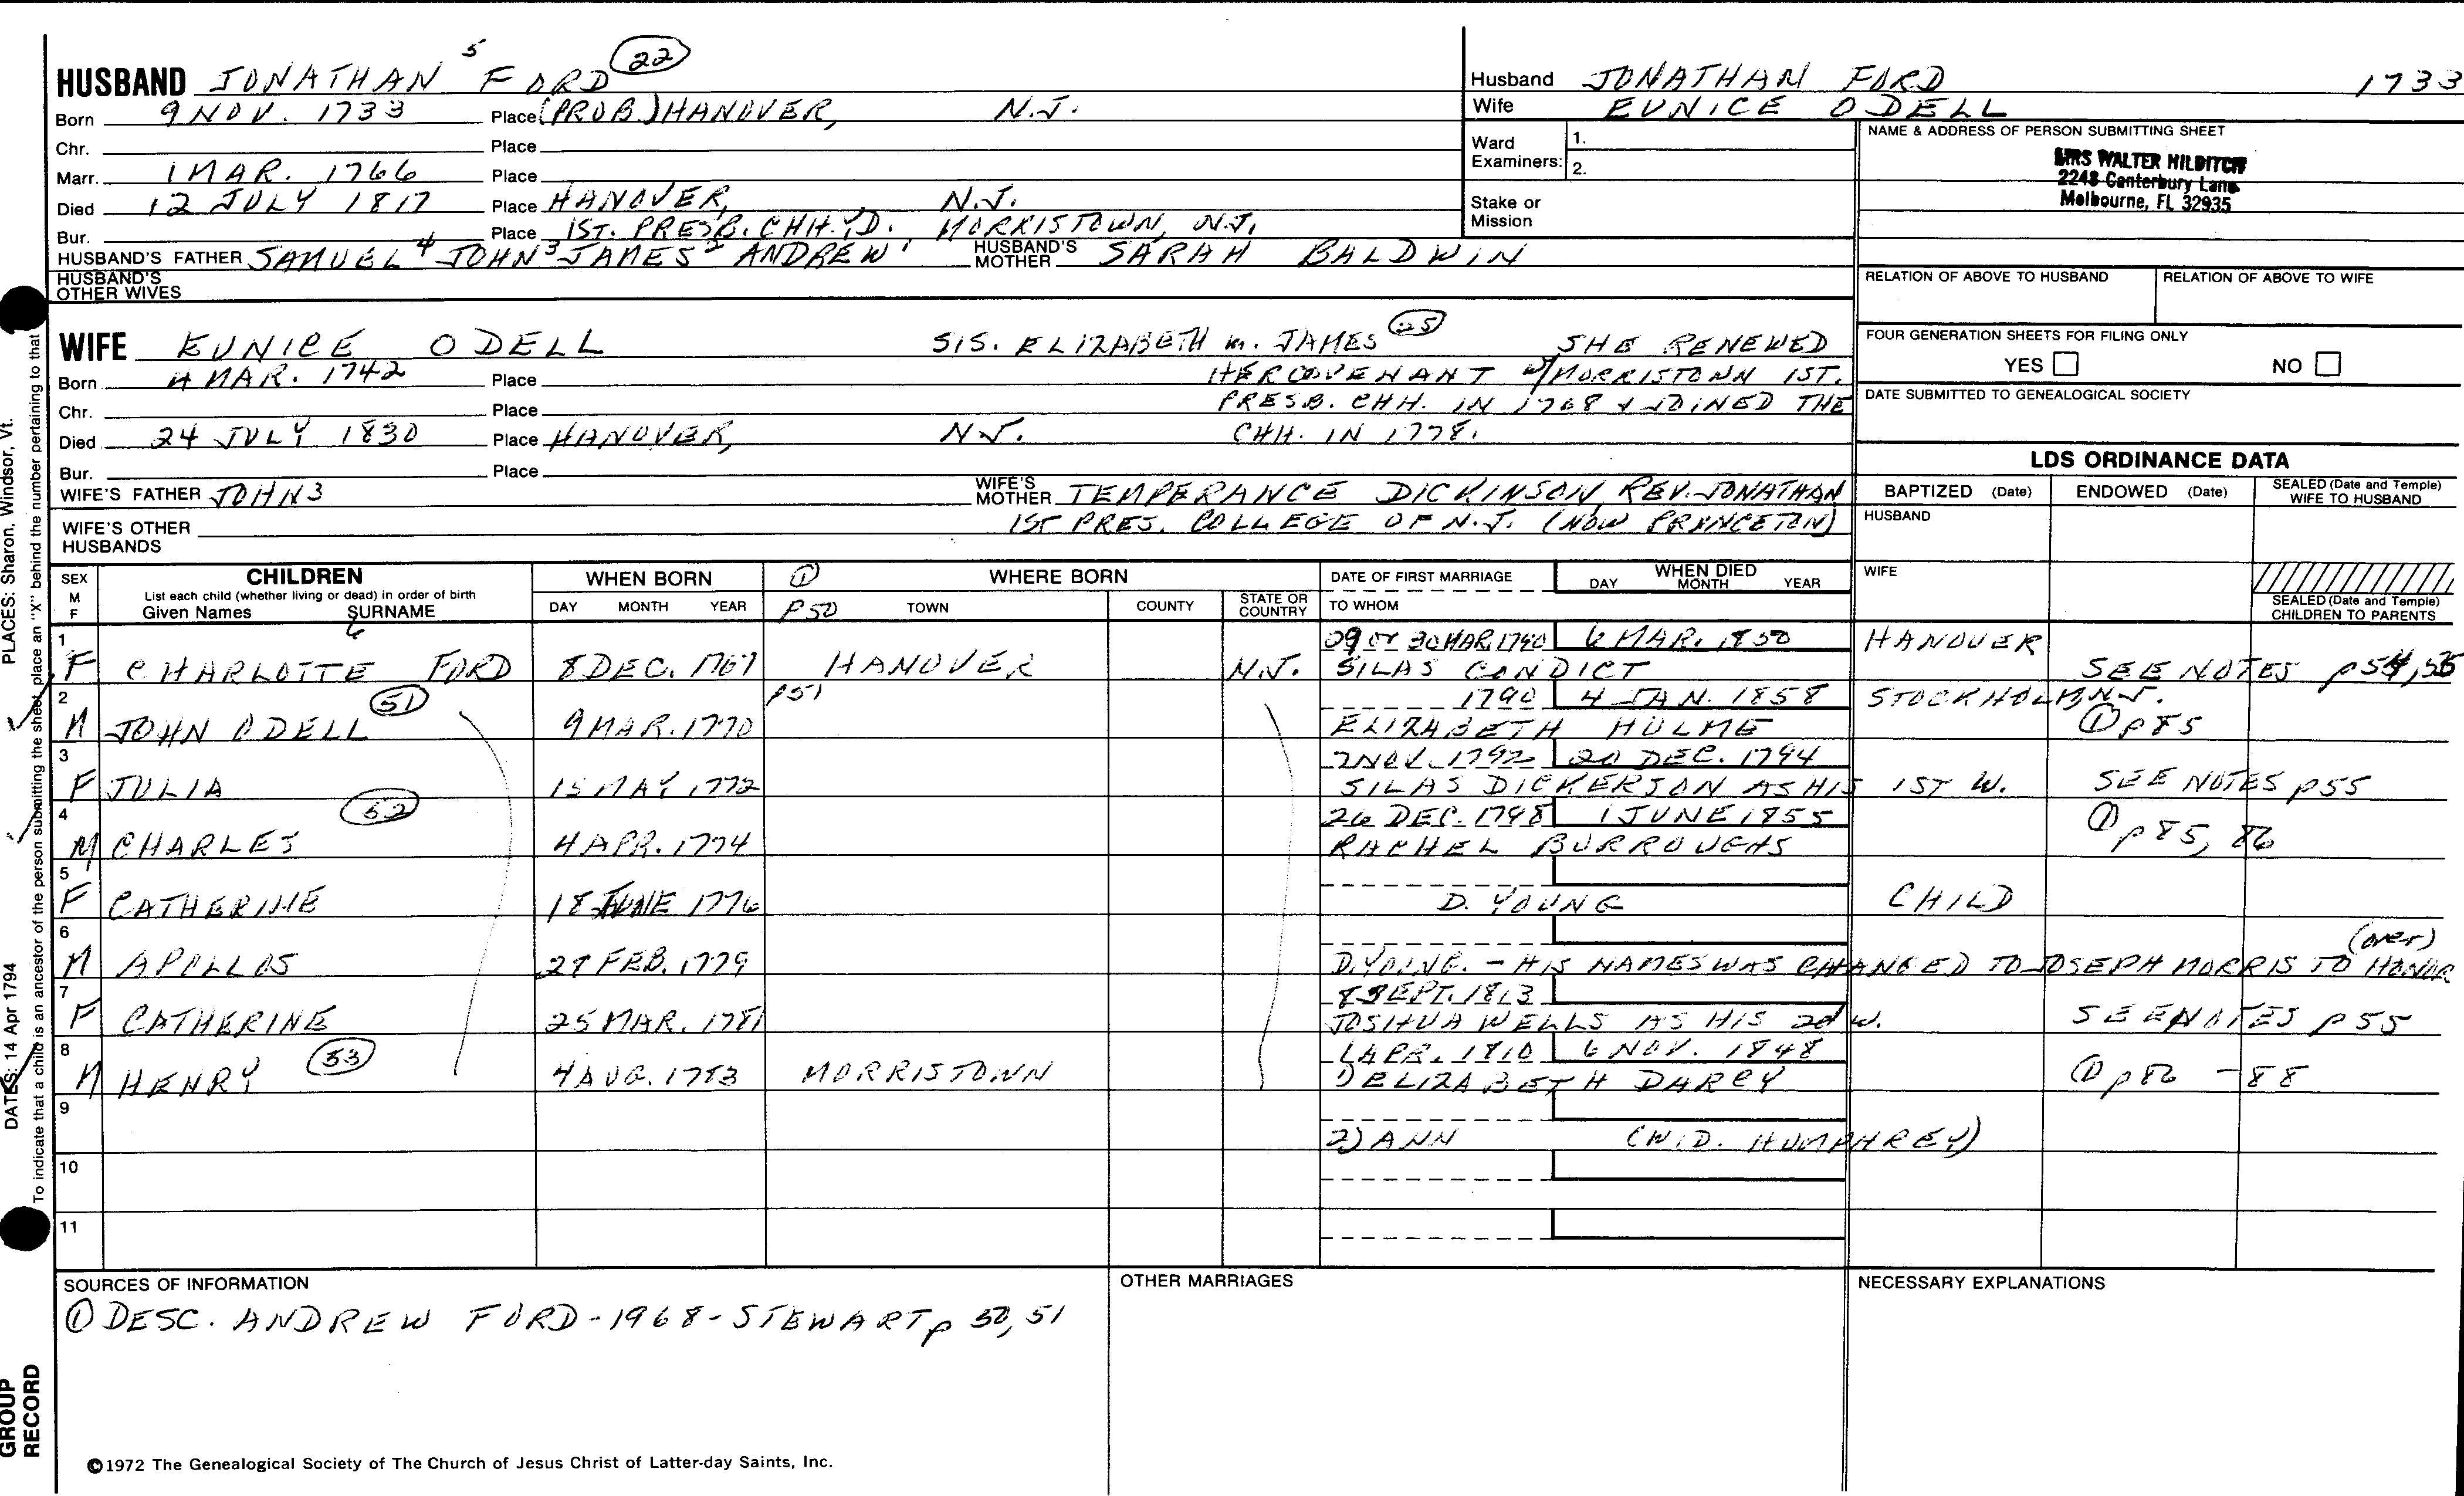 HUSBAND JONATHAN 5 FORD 22
Born 9 NOV. 1733 Place (PROB.) HANOVER, N.J.
Chr. Place
Marr. 1 MAR. 1766 Place
Died 12 JULY 1817 Place HANOVER, N.J.
Bur. Place 1ST. PRESB. CHH. YD. MORRISTOWN, N.J.
HUSBAND'S FATHER SAMUEL 4 JOHN 3 JAMES 2 ANDREW 1 HUSBAND'S MOTHER SARAH BALDWIN
HUSBAND'S OTHER WIVES
Husband JONATHAN FORD 1733
Wife EUNICE ODELL
Ward Examiners: 1.
2.
Stake or Mission
NAME & ADDRESS OF PERSON SUBMITTING SHEET
MRS WALTER HILDITCH
2248 Canterbury Lane
Melbourne, FL 32935
RELATION OF ABOVE TO HUSBAND RELATION OF ABOVE TO WIFE
FOUR GENERATION SHEETS FOR FILING ONLY
YES NO
DATE SUBMITTED TO GENEALOGICAL SOCIETY
WIFE EUNICE ODELL SIS. ELIZABETH m. JAMES 25 SHE RENEWED
Born 4 MAR. 1742 Place HER COVENANT W/MORRISTOWN 1ST.
Chr. Place PRESB. CHH. IN 1768 & JOINED THE
Died 24 JULY 1830 Place HANOVER, N.J. CHH. IN 1778.
Bur. Place
WIFE'S FATHER JOHN 3 WIFE'S MOTHER TEMPERANCE DICKINSON, REV. JONATHAN
1ST PRES. COLLEGE OF N.J. (NOW PRINCETON)
WIFE'S OTHER HUSBANDS
LDS ORDINANCE DATA
BAPTIZED (Date) ENDOWED (Date) SEALED (Date and Temple) WIFE TO HUSBAND
HUSBAND
WIFE
SEALED (Date and Temple) CHILDREN TO PARENTS
SEX M F CHILDREN WHEN BORN ① WHERE BORN DATE OF FIRST MARRIAGE WHEN DIED
List each child (whether living or dead) in order of birth
Given Names SURNAME DAY MONTH YEAR P50 TOWN COUNTY STATE OR COUNTRY TO WHOM DAY MONTH YEAR
6
1 30 MAR. 1790 6 MAR. 1850 HANOVER
F CHARLOTTE FORD 8 DEC. 1767 HANOVER N.J. SILAS CONDICT SEE NOTES p54, 55
2 51 p51 1790 4 JAN. 1858 STOCKHOLM N.J.
M JOHN ODELL 9 MAR. 1770 ELIZABETH HULME ① p85
3 2 NOV. 1792 20 DEC. 1794
F JULIA 15 MAY 1772 SILAS DICKERSON AS HIS 1ST W. SEE NOTES p55
4 52 26 DEC. 1798 1 JUNE 1855
M CHARLES 4 APR. 1774 RACHEL BURROUGHS ① p85, 86
5
F CATHERINE 18 JUNE 1776 D. YOUNG CHILD
6 (over)
M APOLLOS 27 FEB. 1779 D. YOUNG. - HIS NAMES WAS CHANGED TO JOSEPH MORRIS TO HONOR
7 8 SEPT. 1813
F CATHERINE 25 MAR. 1781 JOSHUA WELLS AS HIS 2d W. SEE NOTES p55
8 53 1 APR. 1810 6 NOV. 1848
M HENRY 4 AUG. 1783 MORRISTOWN 1) ELIZABETH DARCY ① p86 - 88
9
2) ANN (WID. HUMPHREY)
10
11
SOURCES OF INFORMATION OTHER MARRIAGES NECESSARY EXPLANATIONS
① DESC. ANDREW FORD - 1968 - STEWART p 50, 51
©1972 The Genealogical Society of The Church of Jesus Christ of Latter-day Saints, Inc.
PLACES: Sharon, Windsor, Vt.
DATES: 14 Apr 1794
To indicate that a child is an ancestor of the person submitting the sheet, place an "X" behind the number pertaining to that
GROUP RECORD